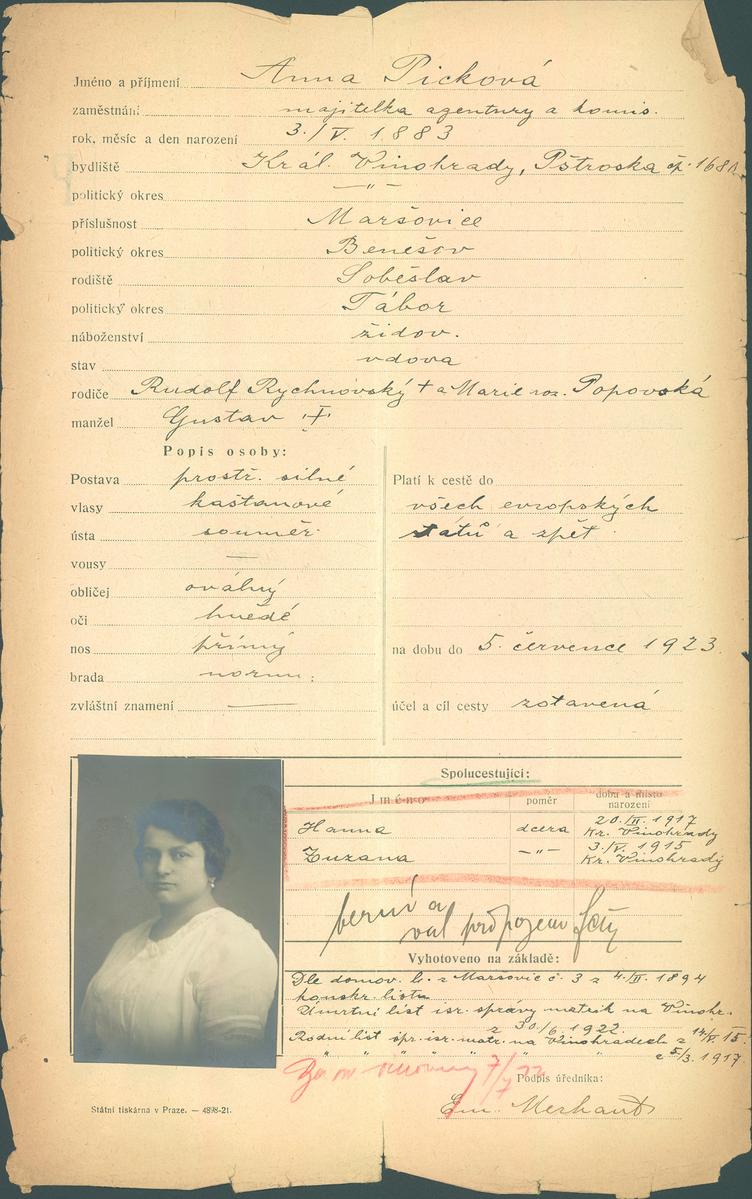 Jméno a příjmení Anna Picková
zaměstnání majitelka agentury a komis.
rok, měsíc a den narození 3./V. 1883
bydliště Král. Vinohrady, Pštroska čp. 168
politický okres —"—
příslušnost Maršovice
politický okres Benešov
rodiště Soběslav
politický okres Tábor
náboženství židov.
stav vdova
rodiče Rudolf Rychnovský † a Marie roz. Popovská
manžel Gustav †
Popis osoby:
Postava prostř. silné
vlasy kaštanové
ústa souměr.
vousy —
obličej oválný
oči hnědé
nos přímý
brada norm:
zvláštní znamení —
Platí k cestě do
všech evropských
států a zpět
na dobu do 5. července 1923.
účel a cíl cesty zotavená
Spolucestující:
Jméno poměr doba a místo narození
Hanna dcera 20./II. 1917 Kr. Vinohrady
Zuzana —"— 3./V. 1915 Kr. Vinohrady
berní a
Vyhotoveno na základě:
Dle domov. l. z Maršovic č. 3 z 4./II. 1894
konskr. lista
Úmrtní list isr. správy matrik na Vinohr.
z 30./6. 1922.
Rodní list spr. isr. matr. na Vinohradech z 14/V. 15.
" " " " " " z 5/3. 1917.
7/7 22
Podpis úředníka:
Em.
Státní tiskárna v Praze. — 4898-21.